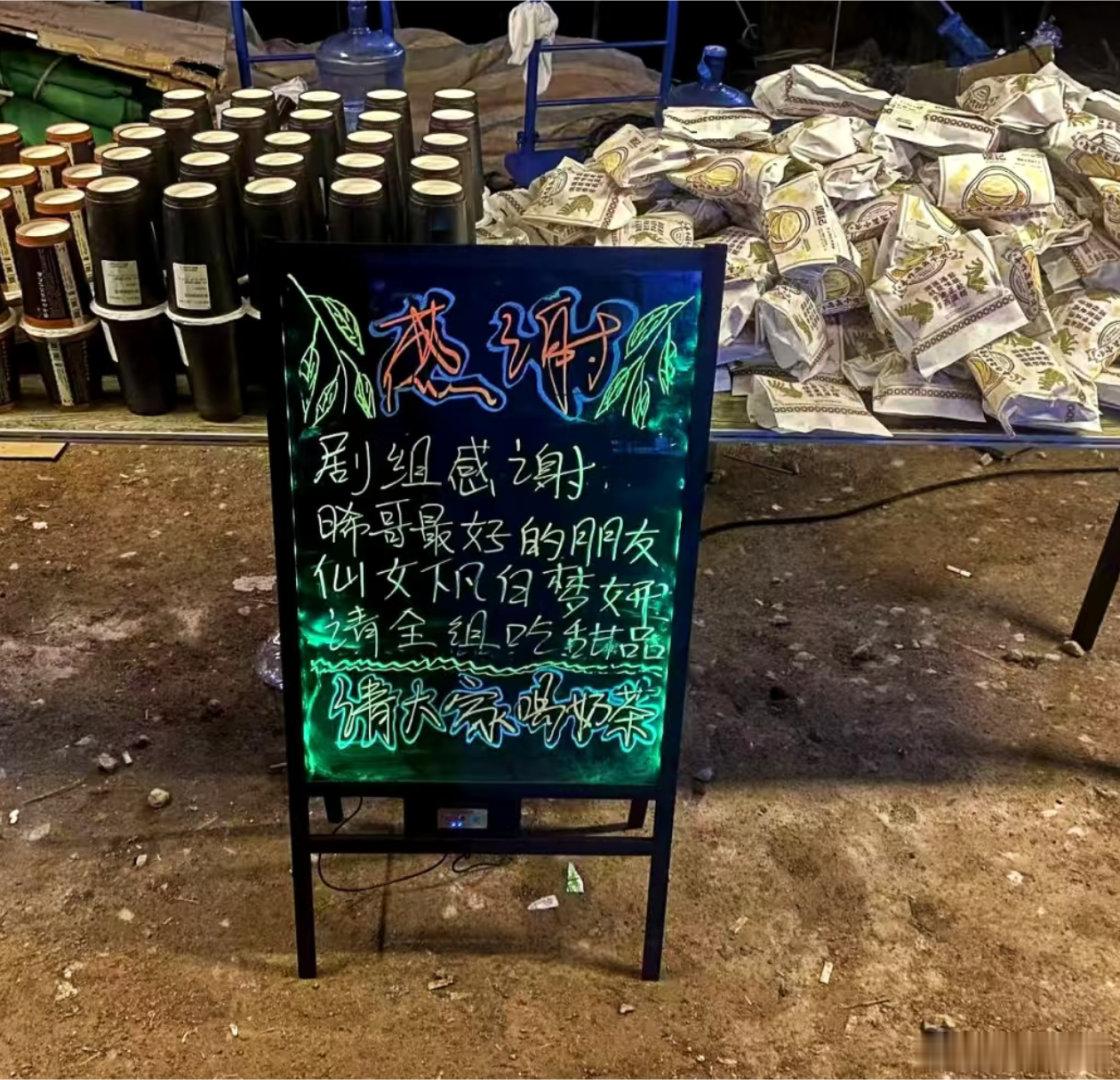 感谢
剧组感谢
晞哥最好的朋友
仙女下凡白梦妍
请全组吃甜品
请大家喝奶茶